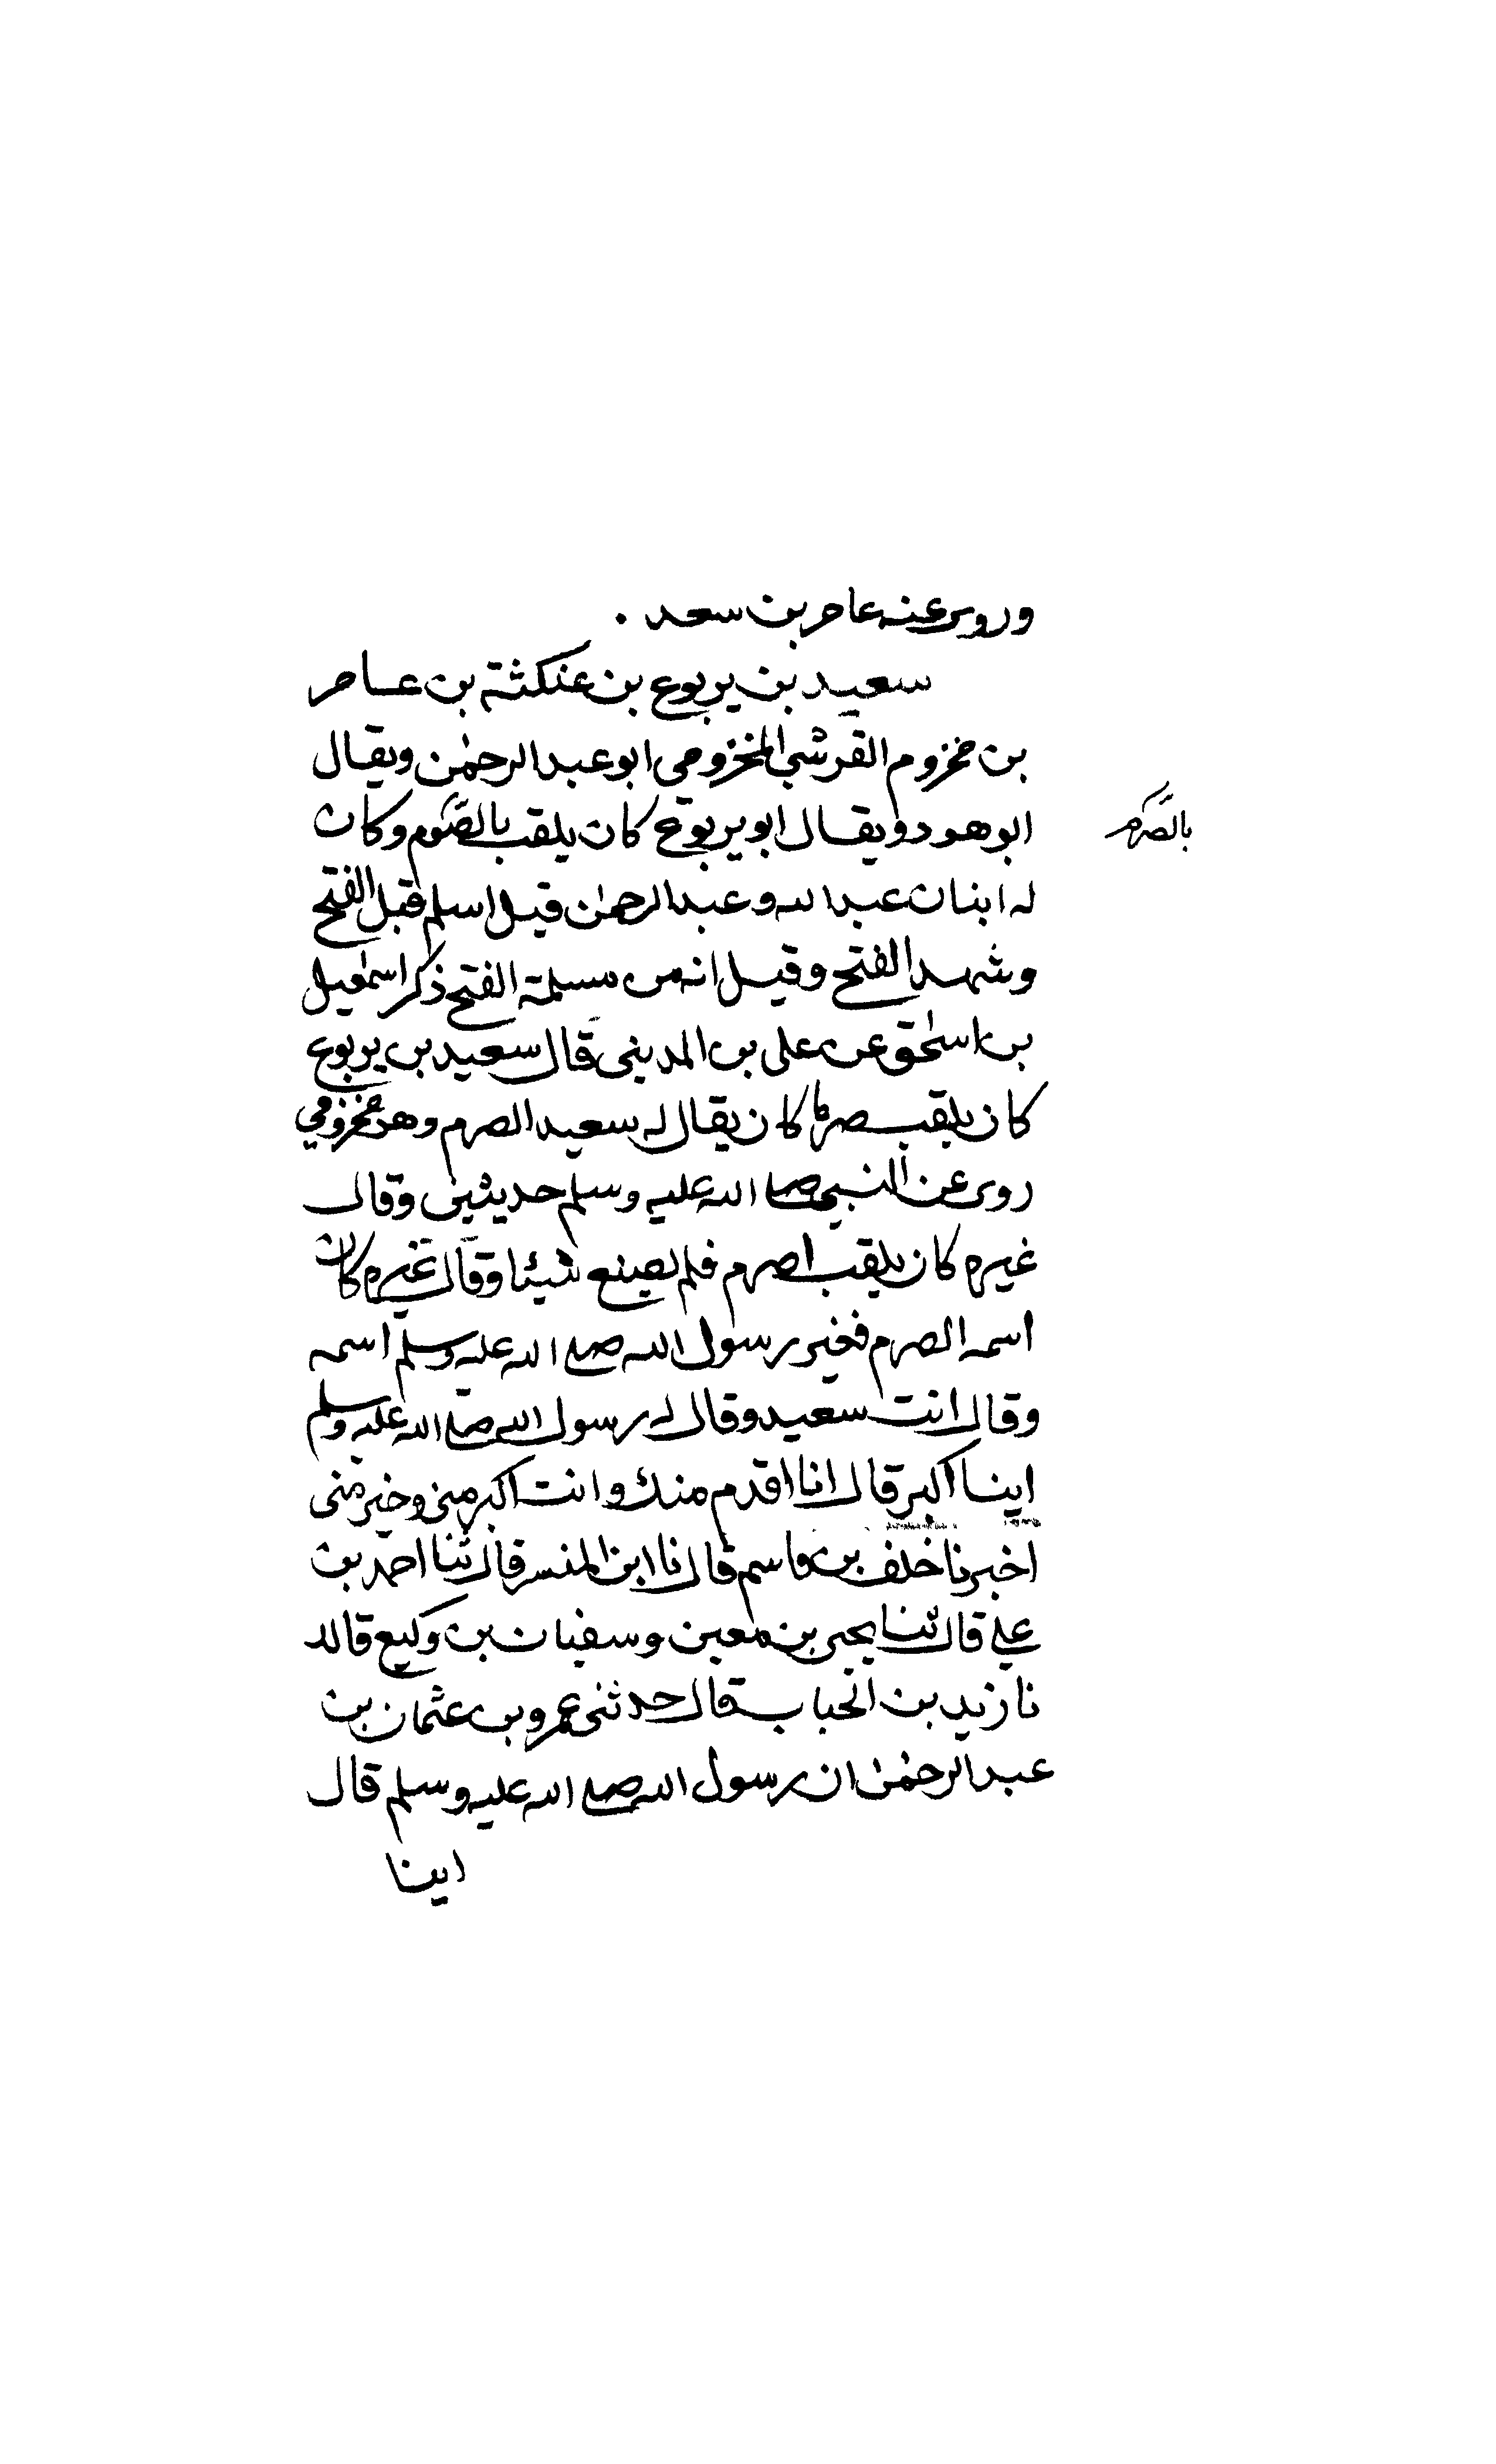 وروى عنه عامر بن سعد ٠
سعيد بن يربوع بن عنكثة بن عامر
بن مخزوم القرشي المخزومى ابو عبد الرحمٰن ويقال
ابو هود ويقال ابو يربوع كان يلقب بالصَّوم وكان
بالصَّرم
له ابنان عبد الله وعبد الرحمٰن قيل اسلم قبل الفتح
وشهد الفتح وقيل انه من مسلمة الفتح ذكر اسمٰعيل
بن اسحٰق عن على بن المدينى قال سعيد بن يربوع
كان يلقب صرما كان يقال له سعيد الصرم وهو مخزومي
روى عن النبي صلى الله عليه وسلم حديثين وقال
غيره كان يلقب اصرم فلم يصنع شيئا وقال غيره كان
اسمه الصرم فغير رسول الله صلى الله عليه وسلم اسمه
وقال انت سعيد وقال له رسول الله صلى الله عليه وسلم
اينا اكبر قال انا اقدم منك وانت اكبر منى وخير منى
اخبرنا خلف بن قاسم قال نا ابن المفسر قال ثنا احمد بن
علي قال ثنا يحيى بن معين وسفيان بن وكيع قالا
نا زيد بن الحباب قال حدثنى عمرو بن عثمان بن
عبد الرحمٰن ان رسول الله صلى الله عليه وسلم قال
اينا